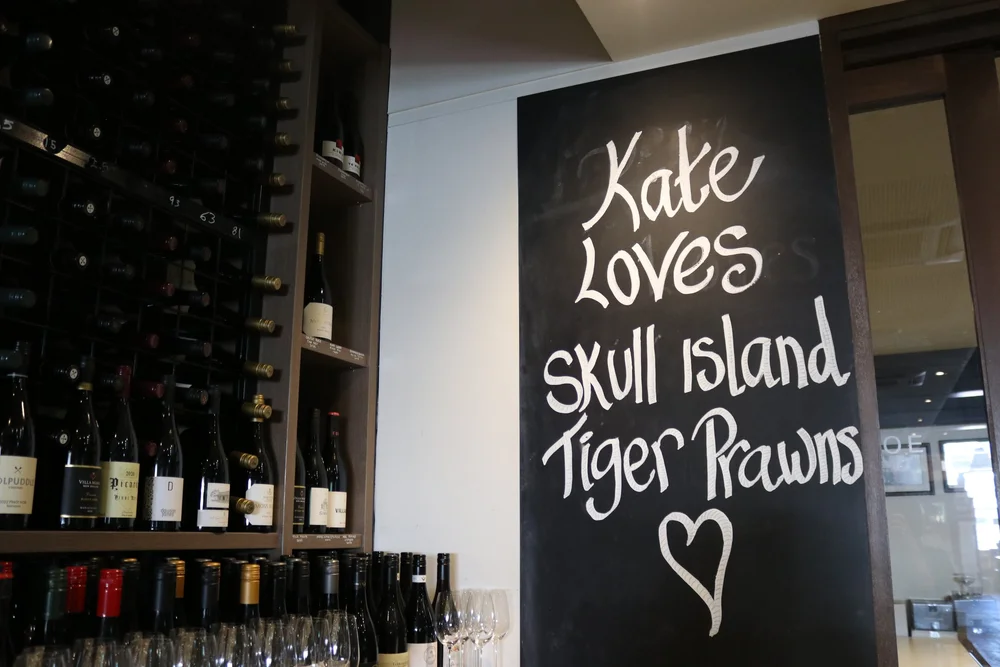 Kate
Loves
Skull Island
Tiger Prawns
93 53 81
D